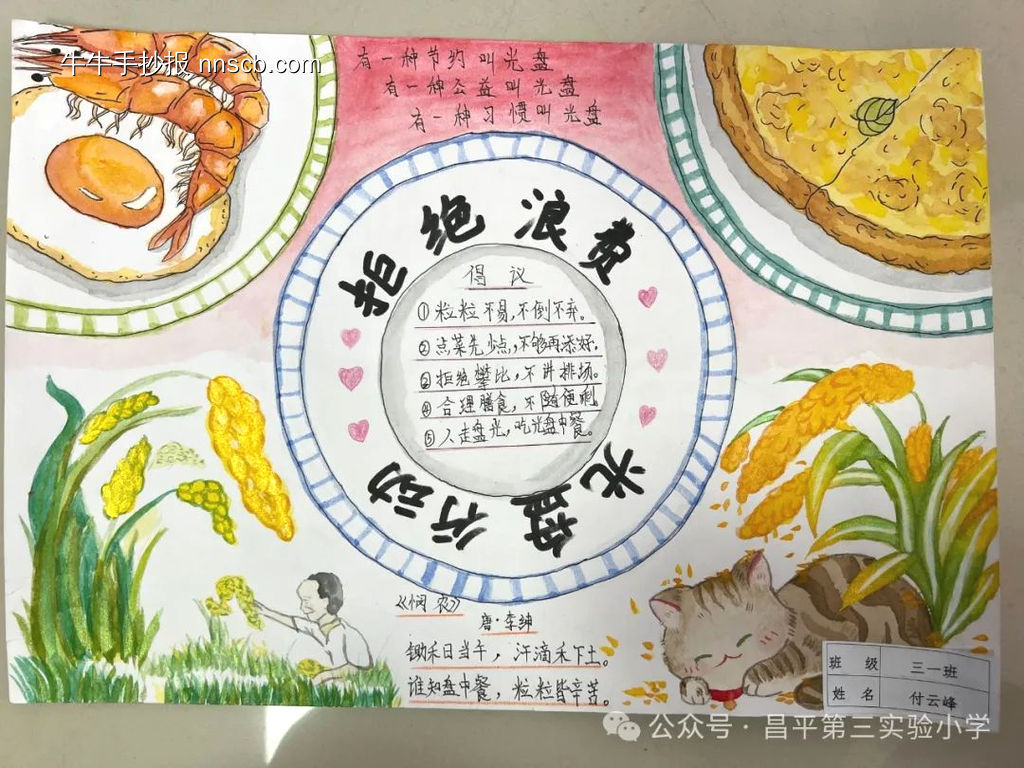 牛牛手抄报 nnscb.com
有一种节约叫光盘
有一种公益叫光盘
有一种习惯叫光盘
拒绝浪费
光盘行动
倡议
①粒粒不易,不倒不弃。
②点菜先少点,不够再添好。
③拒绝攀比,不讲排场。
④合理膳食,不随便剩
⑤人走盘光,吃光盘中餐。
《悯农》
唐·李绅
锄禾日当午,汗滴禾下土。
谁知盘中餐,粒粒皆辛苦。
班级 三一班
姓名 付云峰
公众号·昌平第三实验小学